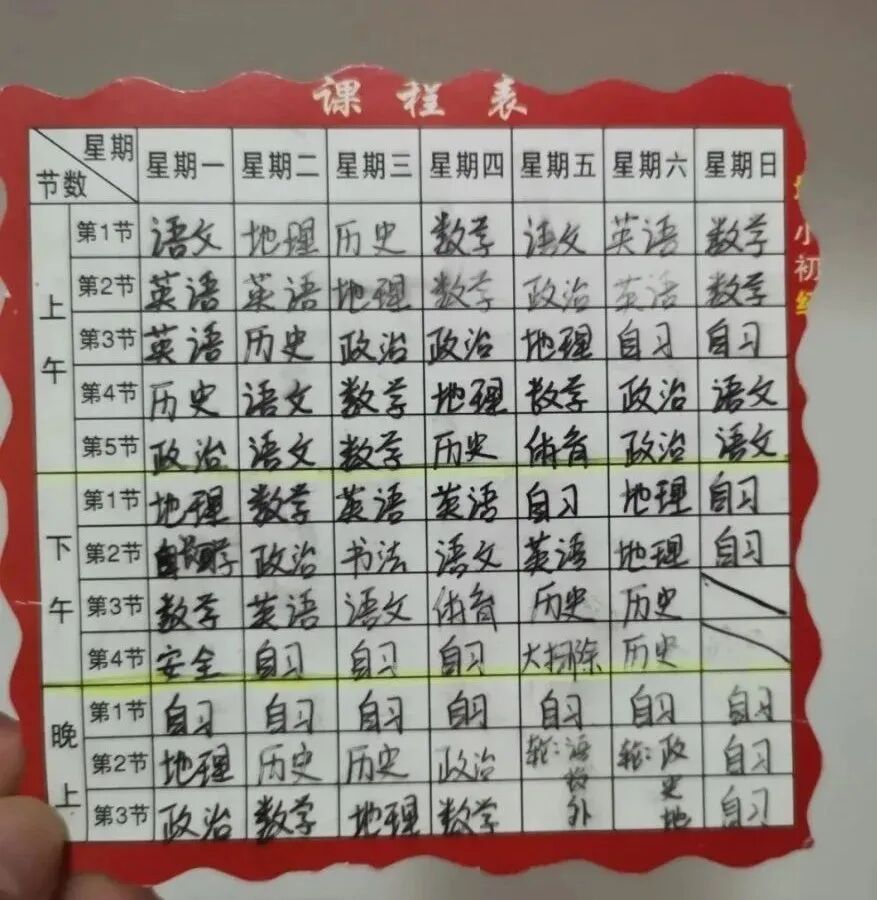 课程表
星期 星期一 星期二 星期三 星期四 星期五 星期六 星期日
节数
上午
第1节 语文 地理 历史 数学 语文 英语 数学
第2节 英语 英语 地理 数学 政治 英语 数学
第3节 英语 历史 政治 政治 地理 自习 自习
第4节 历史 语文 数学 地理 数学 政治 语文
第5节 政治 语文 数学 历史 体育 政治 语文
下午
第1节 地理 数学 英语 英语 自习 地理 自习
第2节 政治 书法 语文 英语 地理 自习
第3节 数学 英语 语文 体育 历史 历史
第4节 安全 自习 自习 自习 大扫除 历史
晚上
第1节 自习 自习 自习 自习 自习 自习 自习
第2节 地理 历史 历史 政治 轮:语 轮:政 自习
数 史
第3节 政治 数学 地理 数学 外 地 自习
小
初